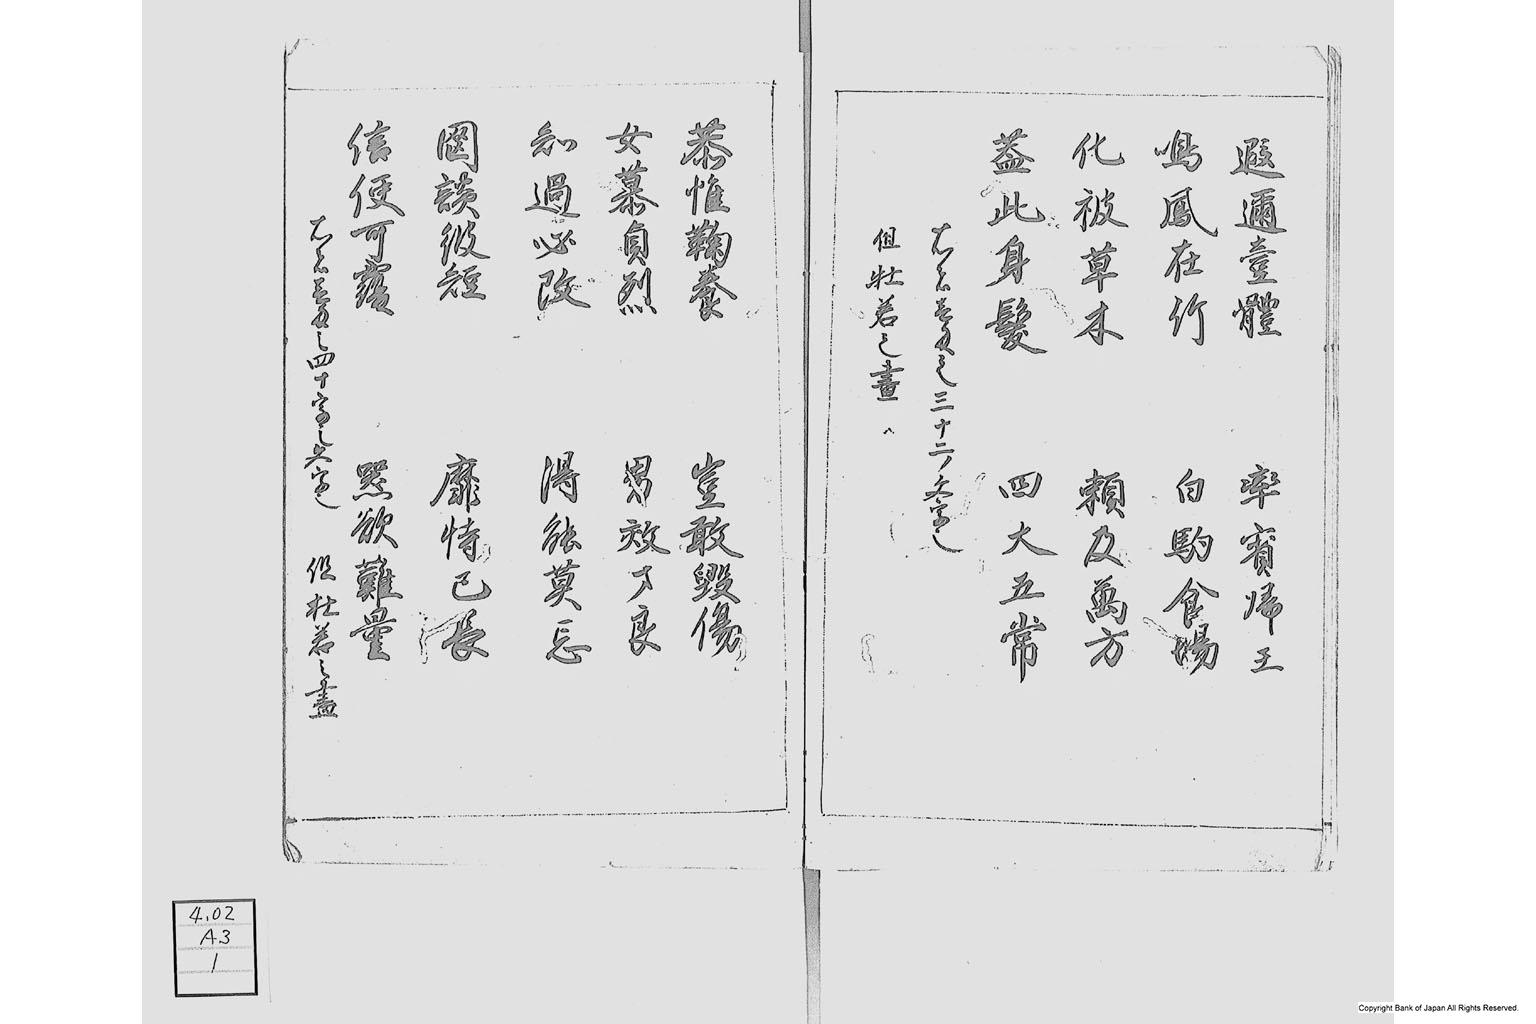 遐邇壹體　率賓帰王
鳴鳳在竹　白駒食場
化被草木　頼及萬方
蓋此身髮　四大五常
三十二ノ文字
但牡若之畫
恭惟鞠養　豈敢毀傷
女慕貞烈　男效才良
知過必改　得能莫忘
罔談彼短　靡恃己長
信使可覆　器欲難量
四十字之文字　但牡若之畫
4.02
A3
1
Copyright Bank of Japan All Rights Reserved.